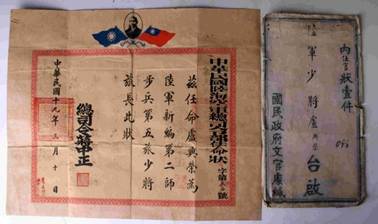 中華民國陸海空軍總司令部任命狀
茲任命盧興榮為
陸軍新編第二師
步兵第五旅少將
旅長此狀
總司令蔣中正
中華民國十九年 月十日
內 狀壹件
軍少將盧興榮台啟
國民政府文官處緘